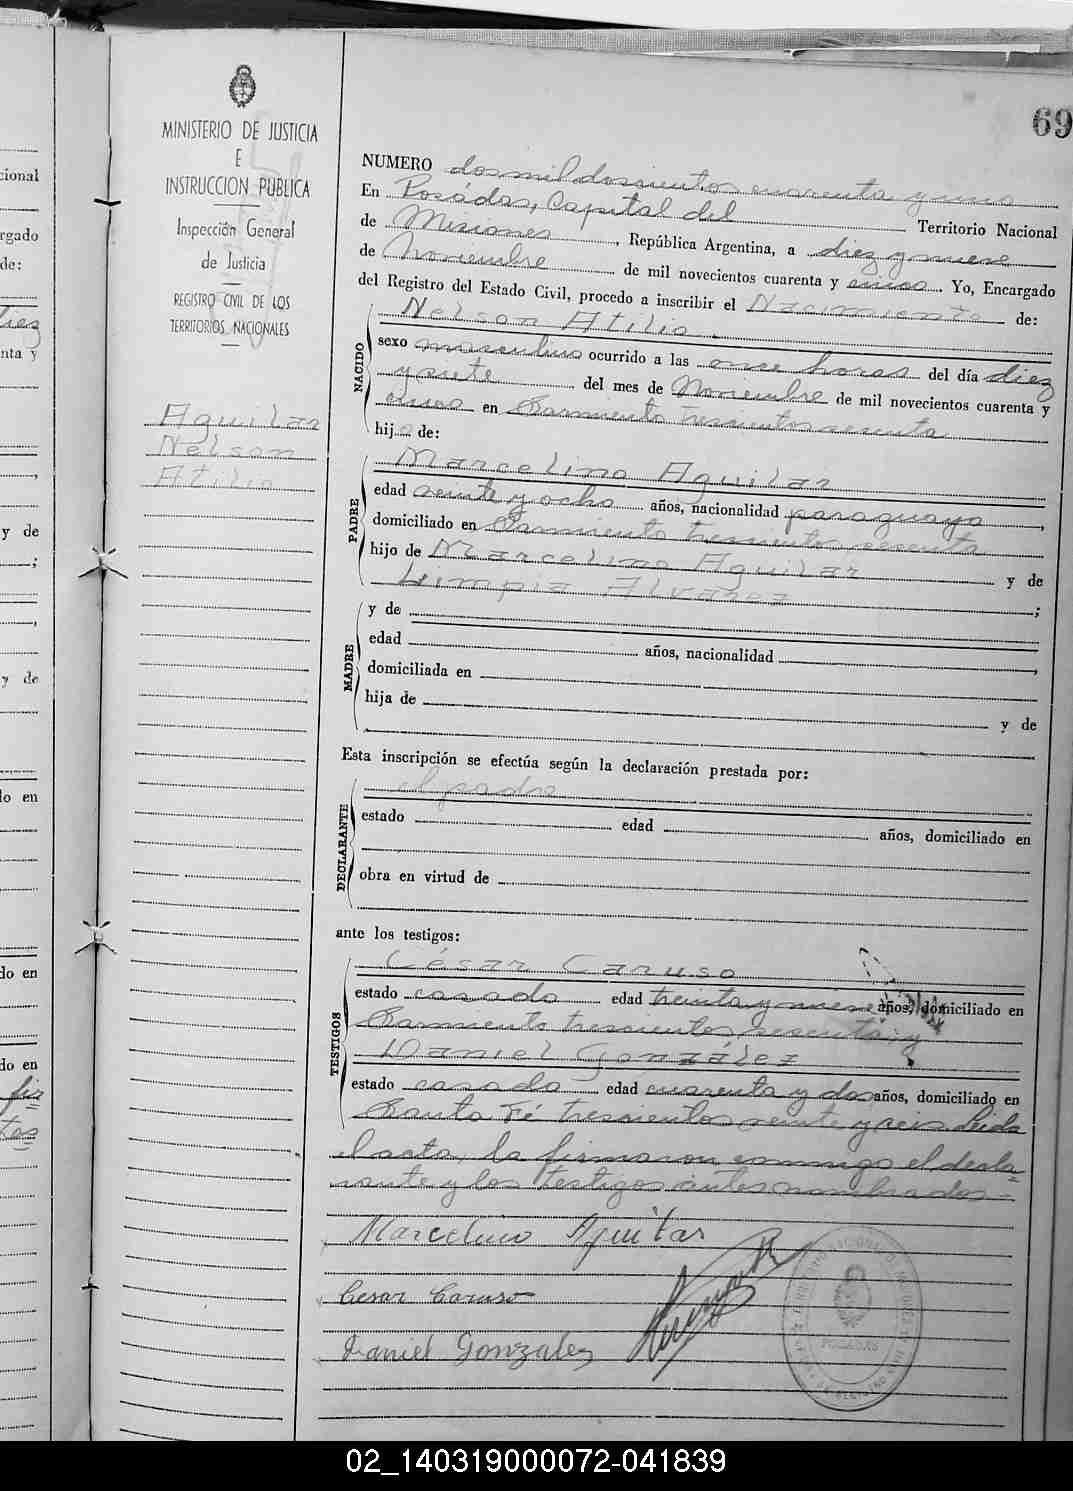 cional
rgado
de:
diez
nta y
y de
y de
do en
do en
do en
MINISTERIO DE JUSTICIA
E
INSTRUCCION PUBLICA
Inspección General
de Justicia
REGISTRO CIVIL DE LOS
TERRITORIOS NACIONALES
Aguilar
Nelson
Atilio
69
NUMERO dos mil doscientos cuarenta y uno
En Posádas, Capital del Territorio Nacional
de Misiones, República Argentina, a diez y nueve
de Noviembre de mil novecientos cuarenta y cinco. Yo, Encargado
del Registro del Estado Civil, procedo a inscribir el Nacimiento de:
NACIDO
Nelson Atilio
sexo masculino ocurrido a las once horas del día diez
y siete del mes de Noviembre de mil novecientos cuarenta y
cinco en Sarmiento trescientos sesenta
hijo de:
PADRE
Marcelino Aguilar
edad veinte y ocho años, nacionalidad paraguaya,
domiciliado en Sarmiento trescientos sesenta
hijo de Marcelino Aguilar y de
Limpia Alvarez;
MADRE
y de
edad años, nacionalidad,
domiciliada en
hija de y de
Esta inscripción se efectúa según la declaración prestada por:
DECLARANTE
el padre
estado edad años, domiciliado en
obra en virtud de
ante los testigos:
TESTIGOS
César Caruso
estado casado edad treinta y nueve años, domiciliado en
Sarmiento trescientos sesenta y
Daniel González
estado casado edad cuarenta y dos años, domiciliado en
Santa Fé trescientos veinte y seis. Leida
el acta, la firmaron conmigo el decla=
rante y los testigos antes nombrados.=
Marcelino Aguilar
Cesar Caruso
Daniel Gonzalez
POSADAS
02_140319000072-041839